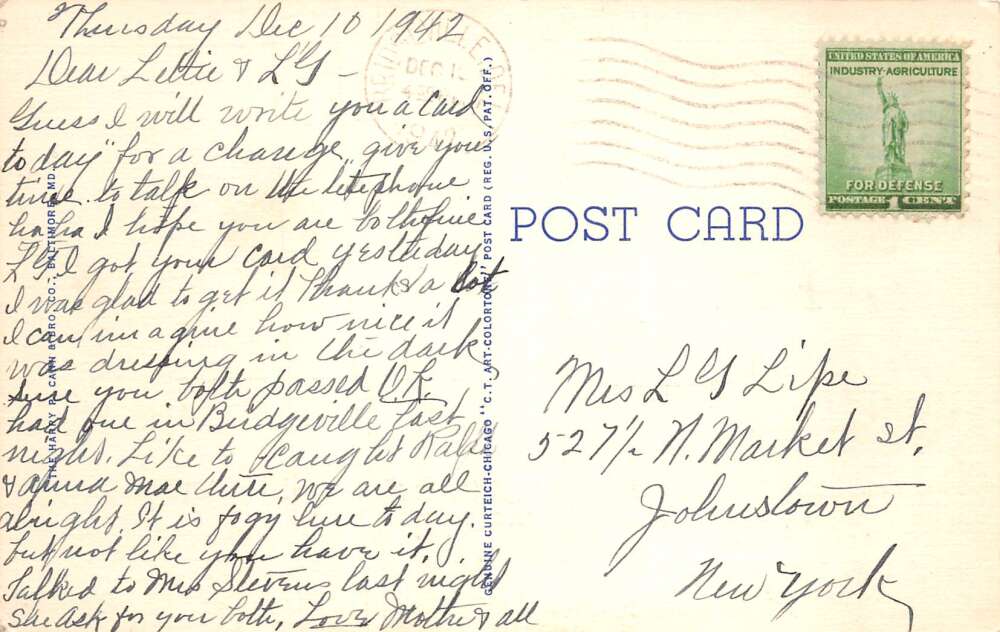 Thursday Dec 10 1942
Dear Lettie & L"G —
Guess I will write you a card
to day "for a change" give you
time to talk on the telephone
haha I hope you are both fine
L"G I got your card yesterday
I was glad to get it Thanks a lot
I can imagine how nice it
was dressing in the dark
sure you both passed O.K.
had one in Bridgeville last
night. Like to caught Ralf
& Anna Mae there, we are all
alright. It is fogy here to day.
but not like you have it.
Talked to Mrs Stevens last night
She ask for you both, Love Mother & all
THE HARRY P. CANN & BRO. CO., BALTIMORE, MD.
GENUINE CURTEICH-CHICAGO "C. T. ART-COLORTONE" POST CARD (REG. U. S. PAT. OFF.)
DEC
1942
UNITED STATES OF AMERICA
INDUSTRY-AGRICULTURE
FOR DEFENSE
POSTAGE 1 CENT
POST CARD
Mrs L G Lipe
527½ N. Market St,
Johnstown
New York